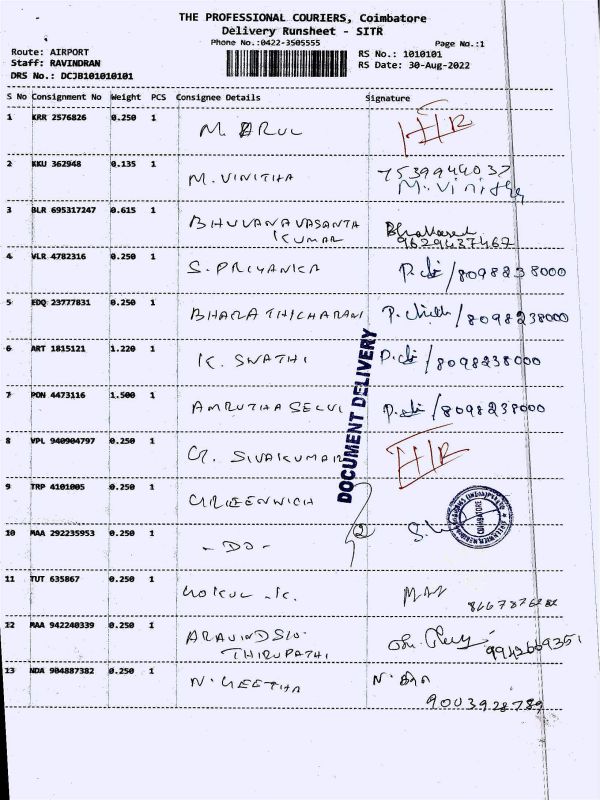 THE PROFESSIONAL COURIERS, Coimbatore
Delivery Runsheet - SITR
Phone No.:0422-3505555
Page No.:1
Route: AIRPORT
RS No.: 1010101
Staff: RAVINDRAN
RS Date: 30-Aug-2022
DRS No.: DCJB101010101
S No Consignment No Weight PCS Consignee Details Signature
1 KRR 2576826 0.250 1 M. ARUL
2 KKU 362948 0.135 1 M. VINITHA 7539944037
M. Vinitha
3 BLR 695317247 0.615 1 BHUVANAVASANTA
KUMAR 9629437467
4 VLR 4782316 0.250 1 S. PRIYANKA /8098238000
5 EDQ 23777831 0.250 1 BHARATHICHARAN /8098238000
6 ART 1815121 1.220 1 K. SWATHI /8098238000
7 PON 4473116 1.500 1 AMRUTHA SELVI /8098238000
DOCUMENT DELIVERY
8 VPL 940904797 0.250 1 G. SIVAKUMAR
9 TRP 4101005 0.250 1 GREENWICH
COIMBATORE
10 MAA 292235953 0.250 1 - DO -
2
11 TUT 635867 0.250 1 GOKUL .K.
12 MAA 942240339 0.250 1 ARAVINDSIO.
THIRUPATHI 9942669351
13 NDA 904887382 0.250 1 N. GEETHA
9003928789